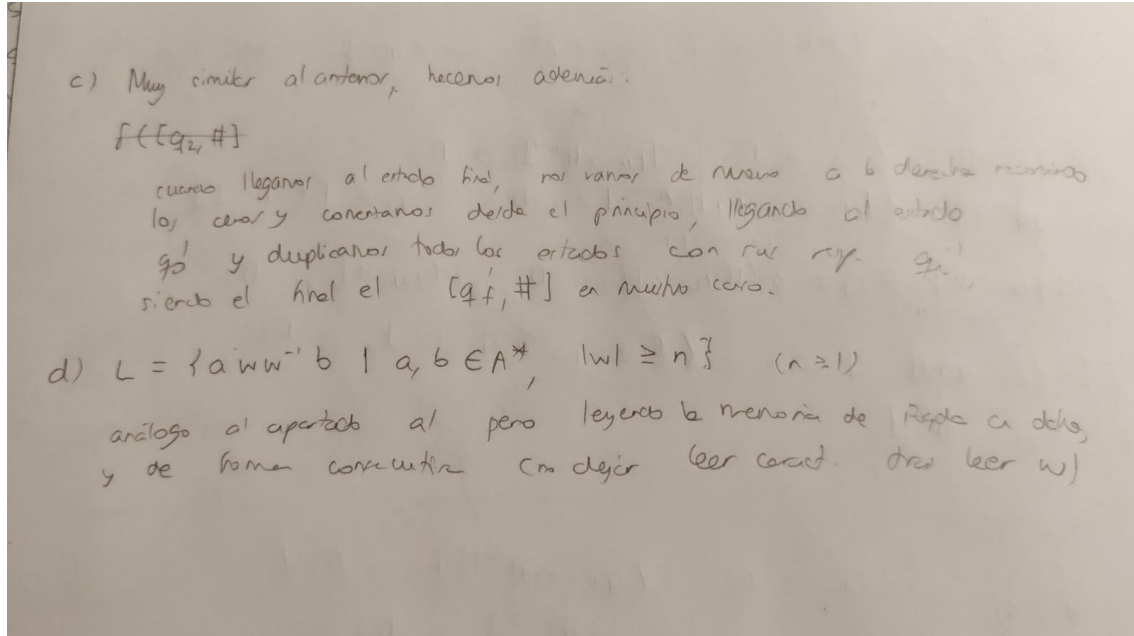 c) Muy similar al anterior, hacemos además:
f([q2, #]
cuando llegamos al estado final, nos vamos de nuevo a la derecha recorriendo
los ceros y comenzamos desde el principio, llegando al estado
q0' y duplicamos todos los estados con sus resp. qi'
siendo el final el [qf', #] en nuestro caso.
d) L = {a w w⁻¹ b | a, b ∈ A*, |w| ≥ n} (n ≥ 1)
análogo al apartado a) pero leyendo la memoria de izqda a dcha,
y de forma consecutiva (no dejar leer caract. tras leer w)